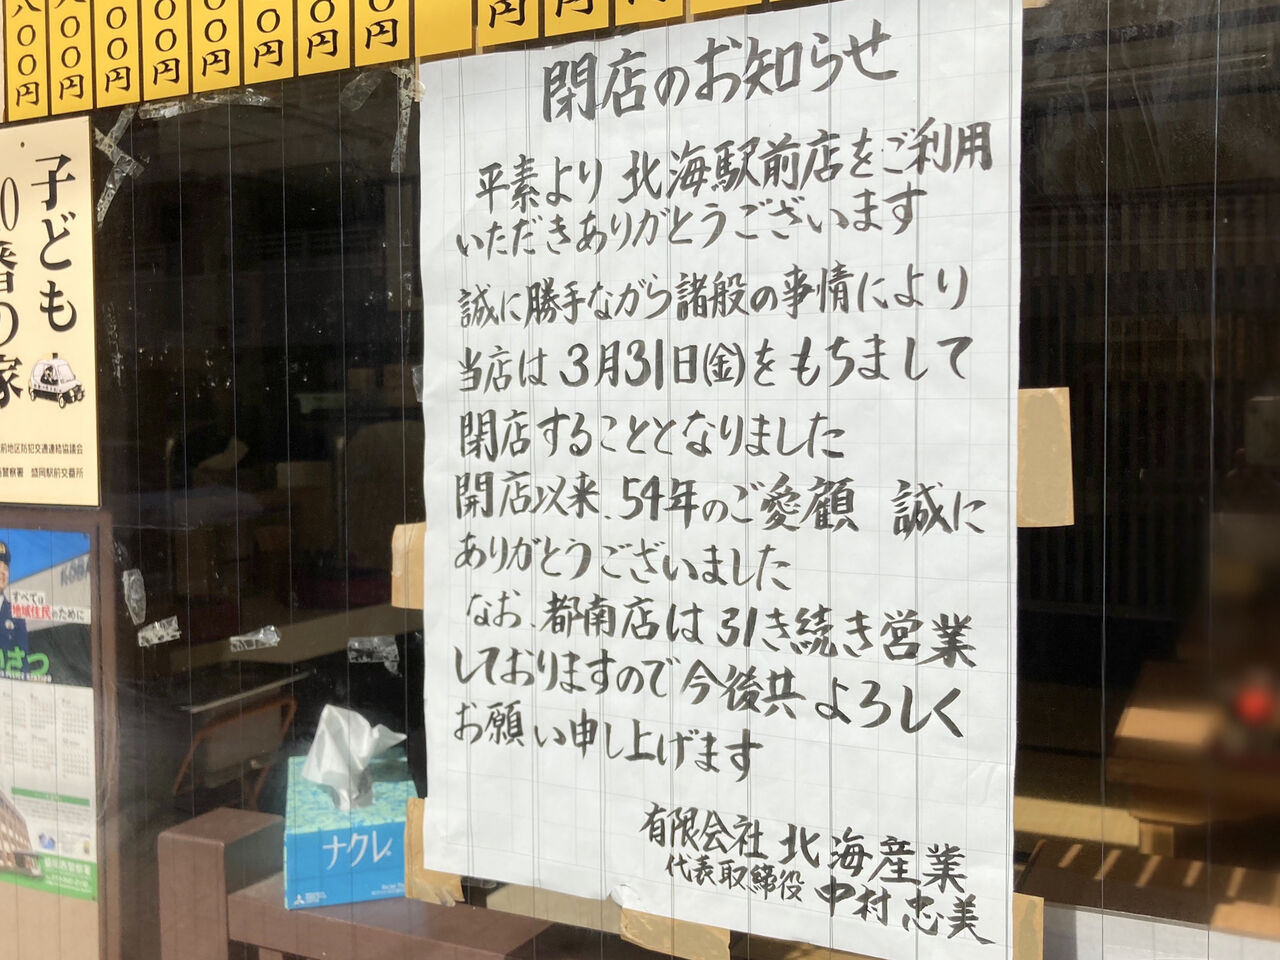 ００円
００円
００円
００円
００円
００円
００円
００円
円
円
閉店のお知らせ
平素より 北海駅前店をご利用
いただきありがとうございます
誠に勝手ながら諸般の事情により
当店は 3月31日(金)をもちまして
閉店することとなりました
開店以来、54年のご愛顧 誠に
ありがとうございました
なお、都南店は引き続き営業
しておりますので今後共よろしく
お願い申し上げます
有限会社 北海産業
代表取締役 中村 忠美
子ども
0番の家
前地区防犯交通連絡協議会
警察署 盛岡駅前交番所
すべては
地域住民のために
さつ
ナクレ